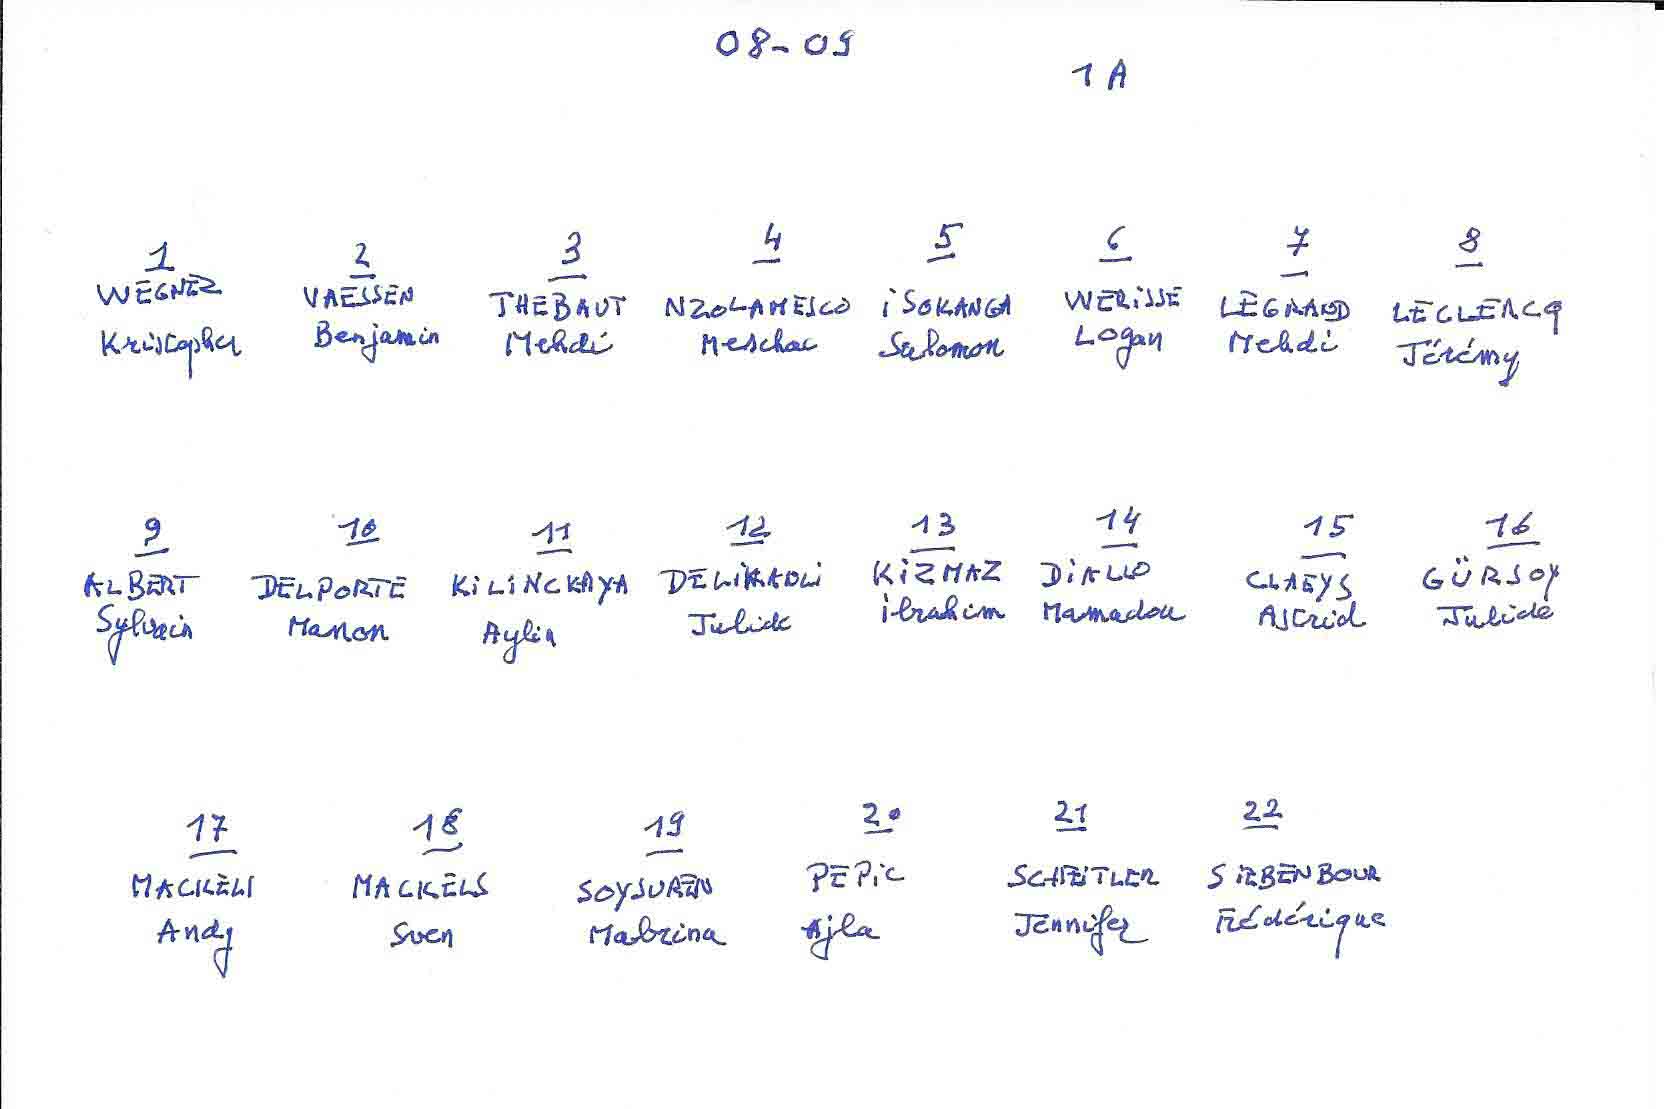 08-09
1A
1 2 3 4 5 6 7 8
WEGNEZ VAESSEN THEBAUT NZOLAMESCO iSOKANGA WERiSSE LEGRAND LECLERCQ
Kristopher Benjamin Mehdi Meschac Salomon Logan Mehdi Jérémy
9 10 11 12 13 14 15 16
ALBERT DELPORTE KiLiNCKAYA DELiKADLi KiZMAZ DiALLO CLAEYS GÜRSOY
Sylvain Manon Aylin Julide ibrahim Mamadou Astrid Julide
17 18 19 20 21 22
MACKELS MACKELS SOYSUREN PEPiC SCHEITLER SIEBENBOUR
Andy Sven Mabrina Ajla Jennifer Frédérique